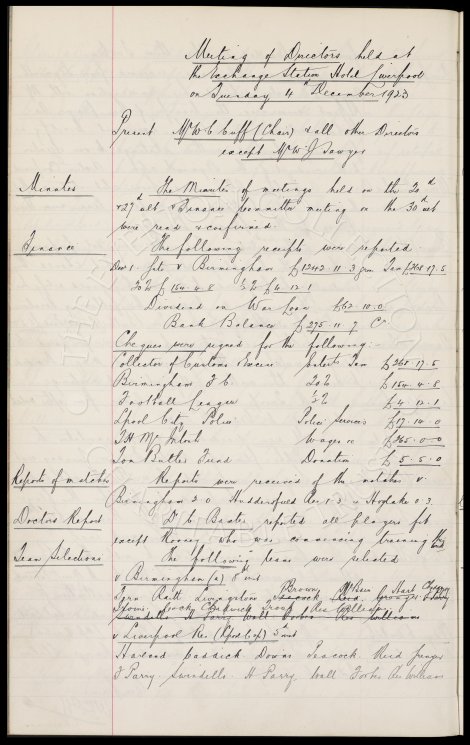 Meeting of Directors held at
the Exchange Station Hotel Liverpool
on Tuesday 4th December 1923
Present Mr W. C. Cuff (Chair) & all other Directors
except Mr W. J. Sawyer
Minutes The Minutes of meetings held on the 20th
& 27th ult & Finance Committee meeting on the 30th ult
were read & confirmed.
Finance The following receipts were reported.
Dec 1. Gate v Birmingham £1242.11.3 gm Tax £268.17.5
20% £164.4.8 ½% £4.12.1
Dividend on War Loan £62.10.0
Bank Balance £275.11.7 Cr.
Cheques were signed for the following:-
Collector of Customs & Excise Enterts Tax £268.17.5
Birmingham F.C. 20% £164.4.8
Football League ½% £4.12.1
Lpool City Police Police Services £17.14.0
T. H. McIntosh Wages &c £265.0.0
Tom Butler Fund Donation £5.5.0
Reports of matches Reports were received of the matches v.
Birmingham 2.0 Huddersfield Res 1.3 v Hoylake 0.3.
Doctors Report Dr C. Baxter reported all players fit
except Rooney who was commencing training
Team Selections The following teams were selected
v Birmingham (a) 8th inst
Brown McBain Hart Chedgzoy
Fern Raitt Livingstone Peacock Reid
Irvine Cock Chadwick Troup Res
Swindells H Parry Wall Forbes Res Williams
v Liverpool Res (Lpool Cup) 5th inst
Harland Caddick Downs Peacock Reid
J Parry. Swindells. H Parry, Wall Forbes Res Williams